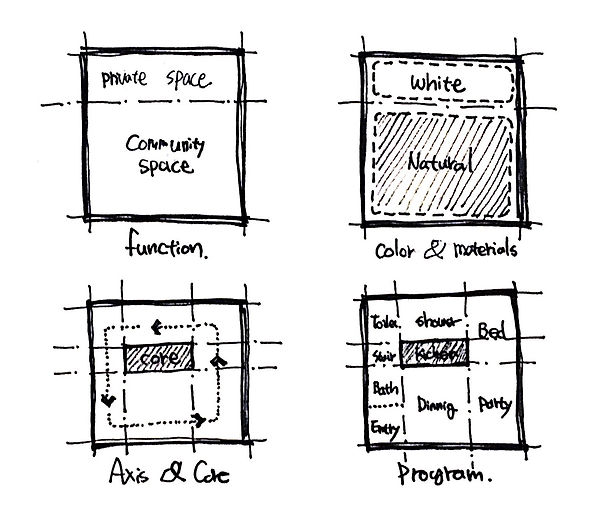 private space
Community
space
function.
White
Natural
Color & materials
core
Axis & Core
Toilet
shower
Bed
Stair
kitchen
Bath
Dinning
party
Entry
Program.